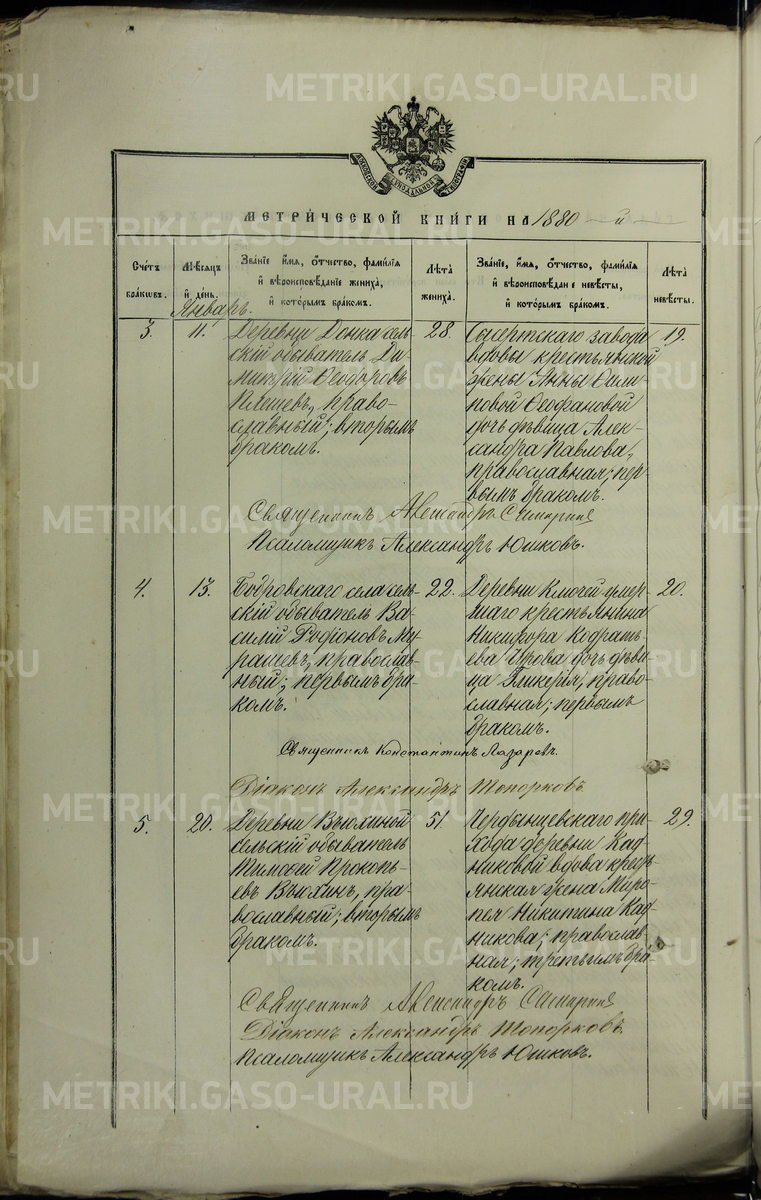 METRIKI.GASO-URAL.RU
МОСКОВСКОЙ СѴНОДАЛЬНОЙ ТИПОГРАФІИ
МЕТРИ́ЧЕСКОЙ КНИ́ГИ НА 1880 й
Сче́тъ бра́ковъ.
Мѣ́сяцъ й де́нь.
Зва́нїе и́мя, о́тчество, фами́лїя й вѣроисповѣ́данїе жениха̀, й кото́рымъ бра́комъ.
Лѣта̀ жениха̀.
Зва́нїе, и́мя, о́тчество, фами́лїя й вѣроисповѣ́данїе невѣ́сты, й кото́рымъ бра́комъ.
Лѣта̀ невѣ́сты.
Январь.
3.
11.
Деревни Донка сель-
скій обыватель Ди-
митрій Ѳеодоровъ
Плешевъ, право-
славный; вторымъ
бракомъ.
28.
Сысертскаго завода
вдовы крестьянской
жены Анны Фили-
повой Ѳеофановой
дочь дѣвица Алек-
сандра Павлова,
православная; пер-
вымъ бракомъ.
19.
Священникъ Александръ
Псаломщикъ Александръ Юшковъ.
4.
13.
Бобровскаго села сель-
скій обыватель Ва-
силій Родіоновъ Му-
рашевъ, православ-
ный; первымъ бра-
комъ.
22.
Деревни Ключей умер-
шаго крестьянина
Никифора Кодрать-
ева дочь дѣви-
ца Гликерія, право-
славная; первымъ
бракомъ.
20.
Священникъ Константинъ Лазаревъ.
Діаконъ Александръ Топорковъ
5.
20.
Деревни Вьюхиной
сельскій обыватель
Тимоѳей Прокопь-
евъ Вьюхинъ, пра-
вославный; вторымъ
бракомъ.
51.
Чердынцевскаго при-
хода деревни Кад-
никовой вдова кресть-
янская жена Миро-
пея Никитина Кад-
никова; православ-
ная; третьимъ бра-
комъ.
29.
Священникъ Александръ
Діаконъ Александръ Топорковъ.
Псаломщикъ Александръ Юшковъ.